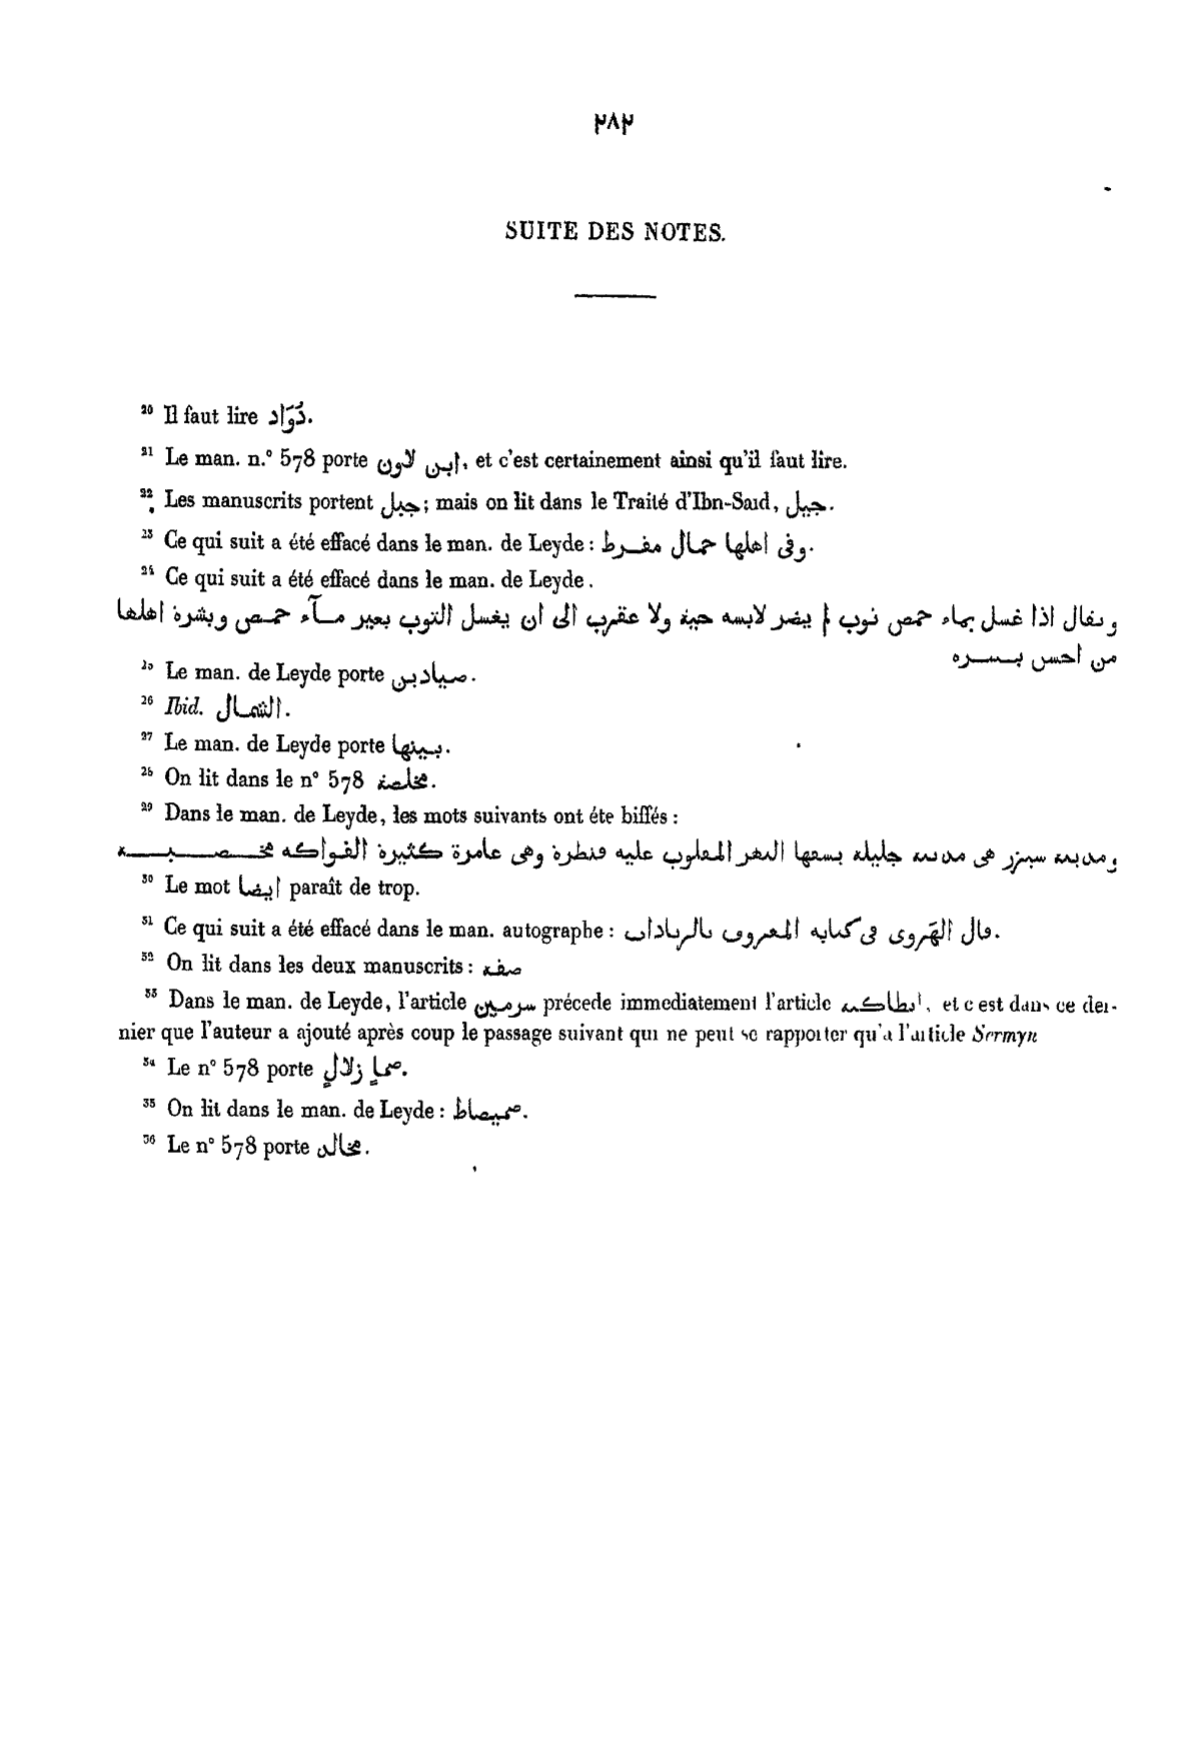 ٢٨٢
SUITE DES NOTES.
20 Il faut lire دُوَاد.
21 Le man. n.° 578 porte ابن لاون, et c'est certainement ainsi qu'il faut lire.
22 Les manuscrits portent جبل; mais on lit dans le Traité d'Ibn-Said, جيل.
23 Ce qui suit a été effacé dans le man. de Leyde : وفى اهلها جمال مفرط.
24 Ce qui suit a été effacé dans le man. de Leyde.
ويقال اذا غسل بماء حمص ثوب لم يضر لابسه حية ولا عقرب الى ان يغسل الثوب بغير مآء حمص وبشرة اهلها
من احسن بشره
25 Le man. de Leyde porte صيادين.
26 Ibid. الشمال.
27 Le man. de Leyde porte بينها.
28 On lit dans le n° 578 مخلصة.
29 Dans le man. de Leyde, les mots suivants ont été biffés :
ومدينة شيزر هى مدينة جليلة يسقها النهر المقلوب عليه قنطرة وهى عامرة كثيرة الفواكه مخصبة
30 Le mot ايضا paraît de trop.
31 Ce qui suit a été effacé dans le man. autographe : قال الهَروى فى كتابه المعروف بالزيادات.
32 On lit dans les deux manuscrits : صفه
33 Dans le man. de Leyde, l'article سرمين précede immediatement l'article انطاكيه, et c'est dans ce der-
nier que l'auteur a ajouté après coup le passage suivant qui ne peut se rapporter qu'à l'article Sermyn
34 Le n° 578 porte زلالٍ.
35 On lit dans le man. de Leyde : صميصاط.
36 Le n° 578 porte.